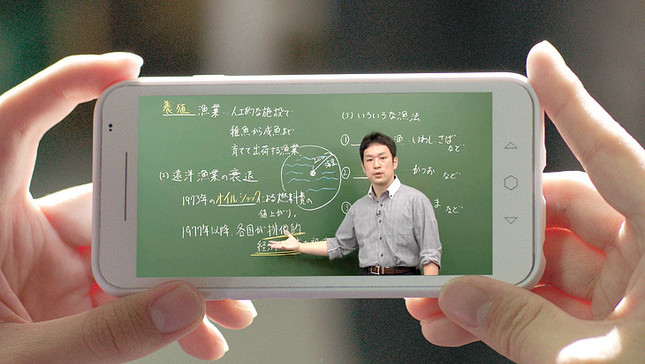 養殖 漁業…人工的な施設で
稚魚から成魚まで
育てて出荷する漁業
(2) 遠洋漁業の衰退
1973年のオイルショックによる燃料費の
値上がり。
1977年以降、各国が排他的
経済
(3) いろいろな漁法
① 漁…いわし、さば
など
② かつお など
③ ま など